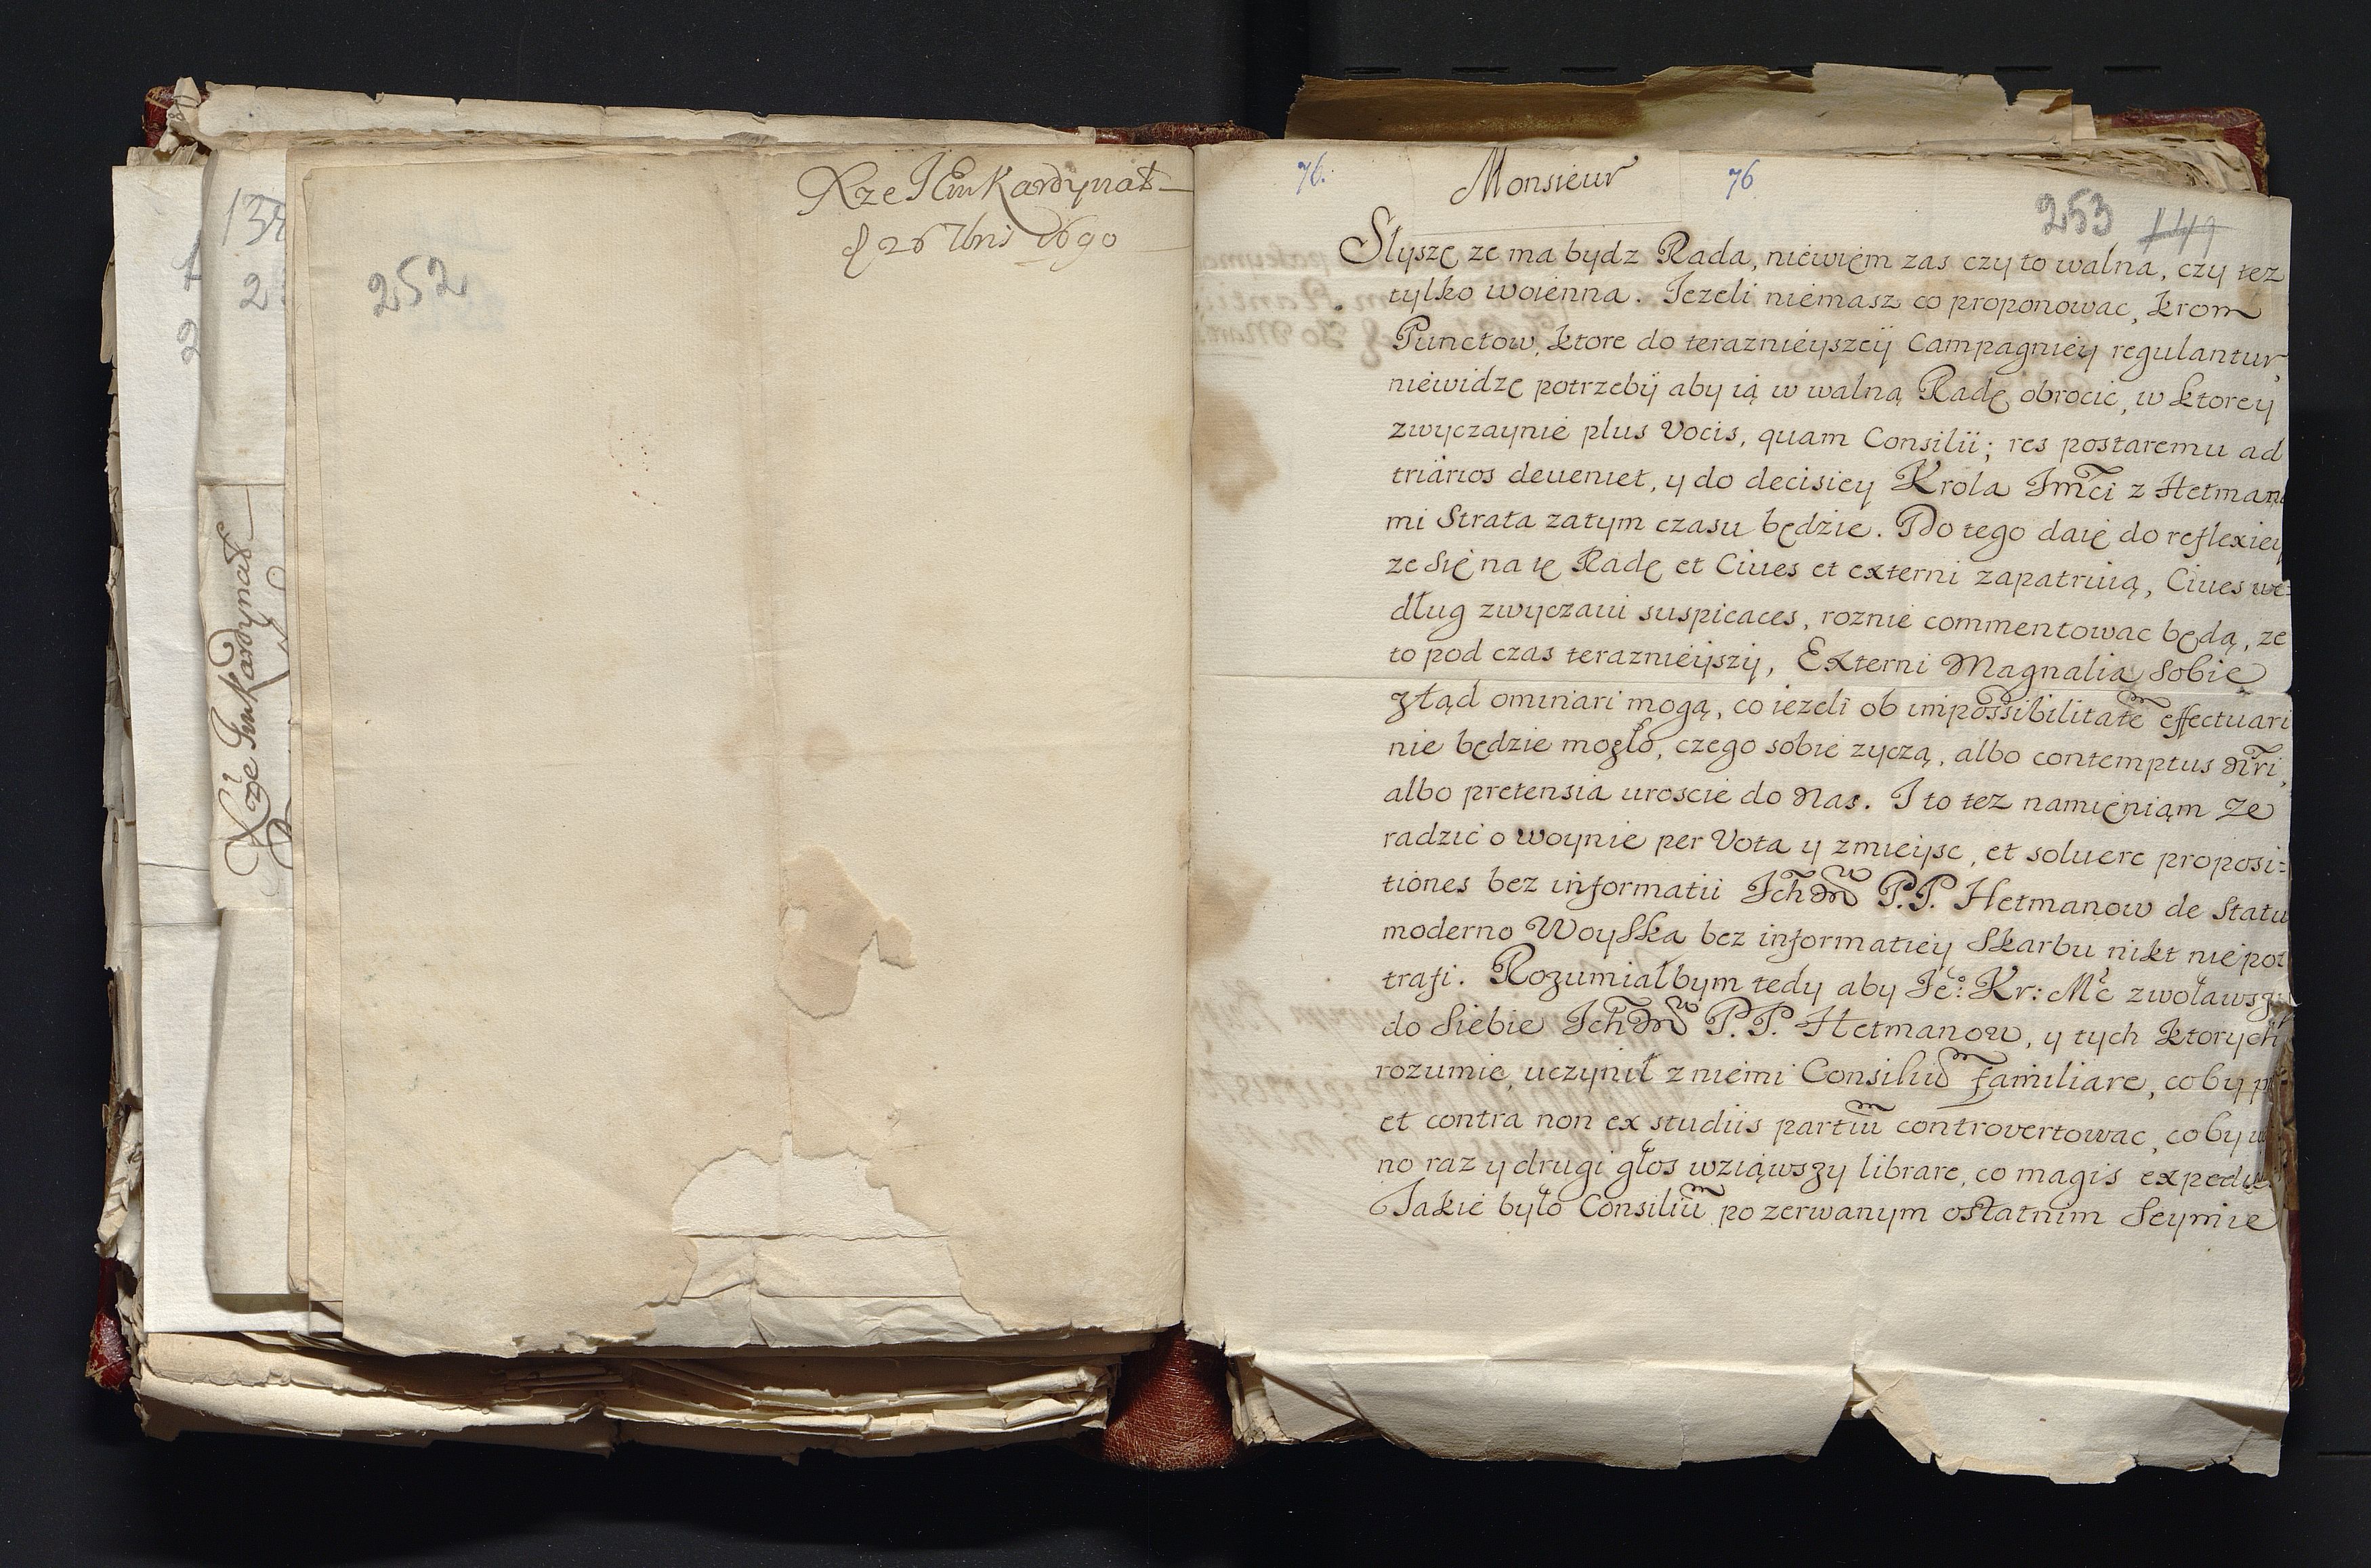 Xże JEm Kardynał
d 26 7bris 1690
252
Xże Jmkardynał
76.
Monsieur
76
253 149
Slyszę ze ma bydz Rada, niewięm zas czy to walna, czy tez
tylko woienna. Jezeli niemasz co proponowac, krom
Punctow, ktore do teraznieyszeÿ Campagniey regulantur,
niewidzę potrzebÿ aby ią w walną Radę obrocic, w ktorey
zwyczaynie plus Vocis, quam Consilii; res postaremu ad
triarios deueniet, y do decisiey Krola Jm̃ci z Hetmana
mi Strata zatym czasu będzie. Do tego daię do reflexiey
ze Się na tę Radę et Ciues et externi zapatruią, Ciues we=
dług zwyczaiu suspicaces, roznie commentowac będą, ze
to pod czas teraznieÿszÿ, Externi Magnalia Sobie
ztąd ominari mogą, co iezeli ob impossibilitatẽ effectuari
nie będzie mogło, czego sobie zyczą, albo contemptus nr̃i,
albo pretensia uroscie do Nas. I to tez namięniąm ze
radzic o woynie per Vota y zmieÿsc, et soluere proposi=
tiones bez informatii Ichm̃ P.P. Hetmanow de Statu
moderno Woyska bez informatieÿ Skarbu nikt nie po
trafi. Rozumiałbym tedy aby Je: Kr: Mc zwoławszy
do Siebie Ichm̃ P.P. Hetmanow, y tych ktorych
rozumie, uczynił zniemi Consiliũ Familiare, coby p
et contra non ex studiis partiũ controvertowac, coby
no raz y drugi głos wziąwszy librare, co magis expedi
Jakie było Consiliũ po zerwanym ostatnim Seymie